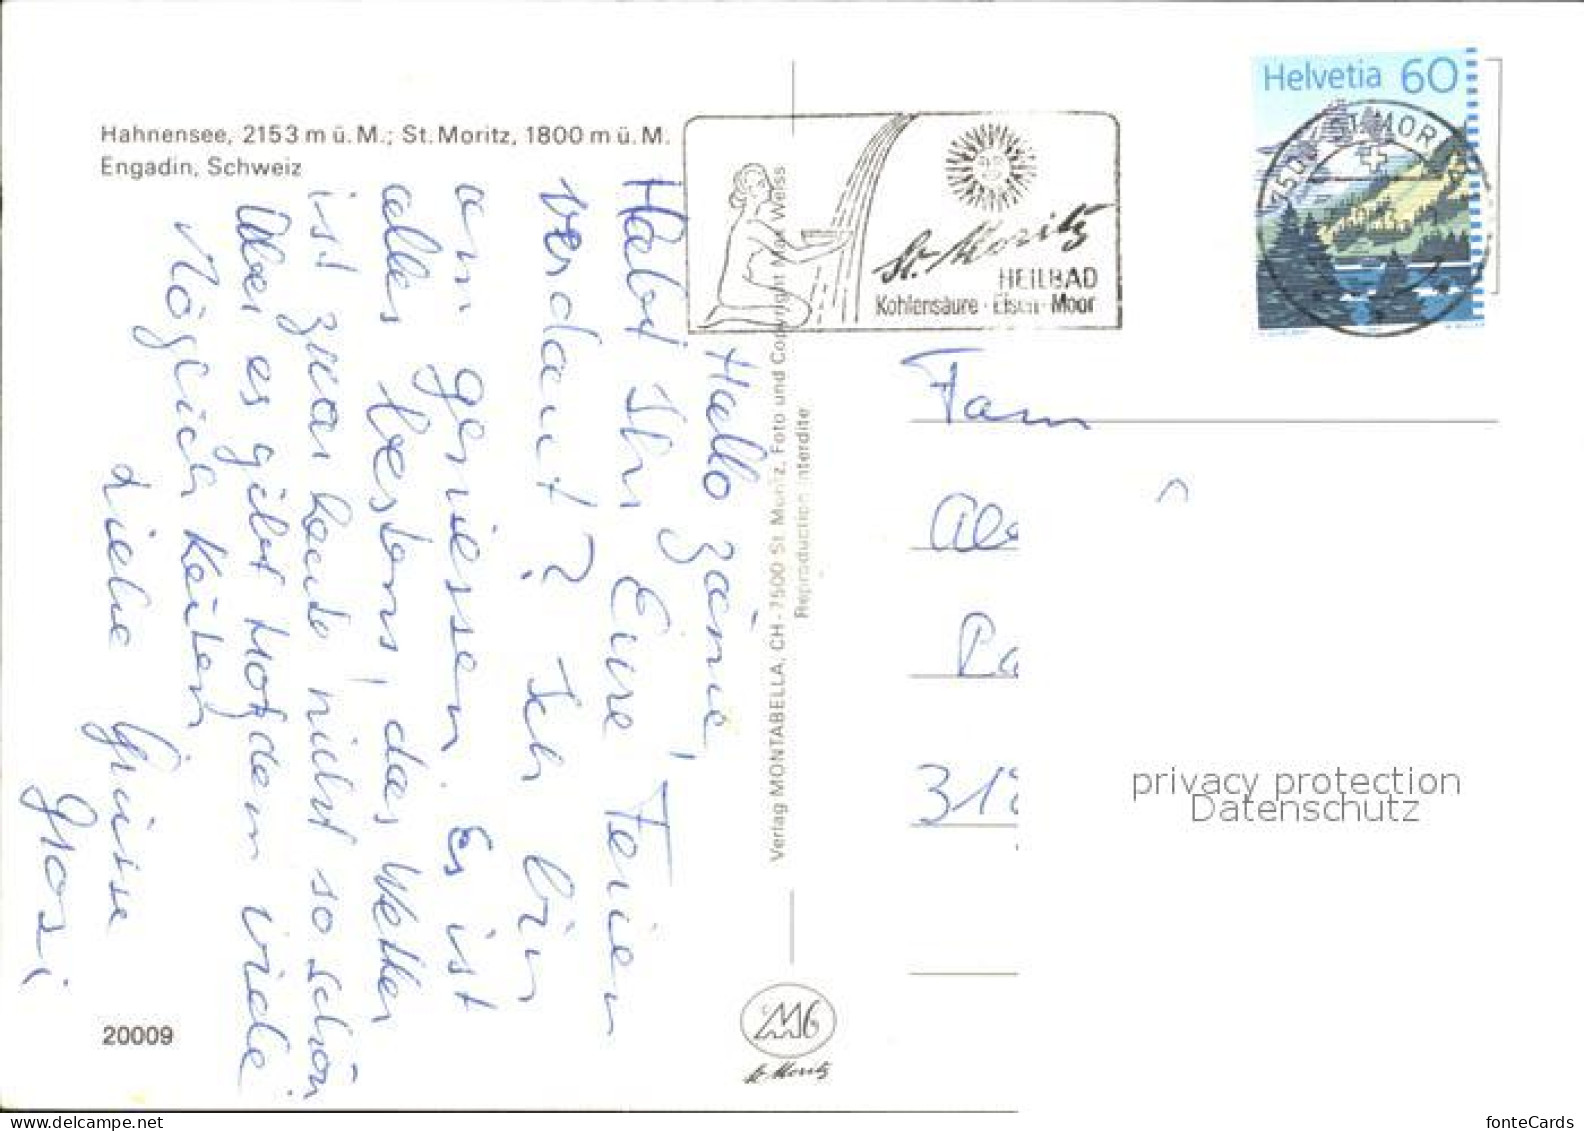 Hahnensee, 2153 m ü. M.; St. Moritz, 1800 m ü. M.
Engadin, Schweiz
Hallo zäme,
Habt Ihr Eure Ferien
verdaut? Ich bin
am geniessen. Es ist
alles bestens, das Wetter
ist zwar heute nicht so schön
Aber es gibt trotzdem viele
Möglichkeiten
Liebe Grüsse
20009
Verlag MONTABELLA, CH-7500 St. Moritz, Foto und Copyright Max Weiss
Reproduction interdite
St. Moritz
St. Moritz
HEILBAD
Kohlensäure · Eisen · Moor
Helvetia 60
7500 ST. MORITZ
Fam
318
privacy protection
Datenschutz
fonteCards